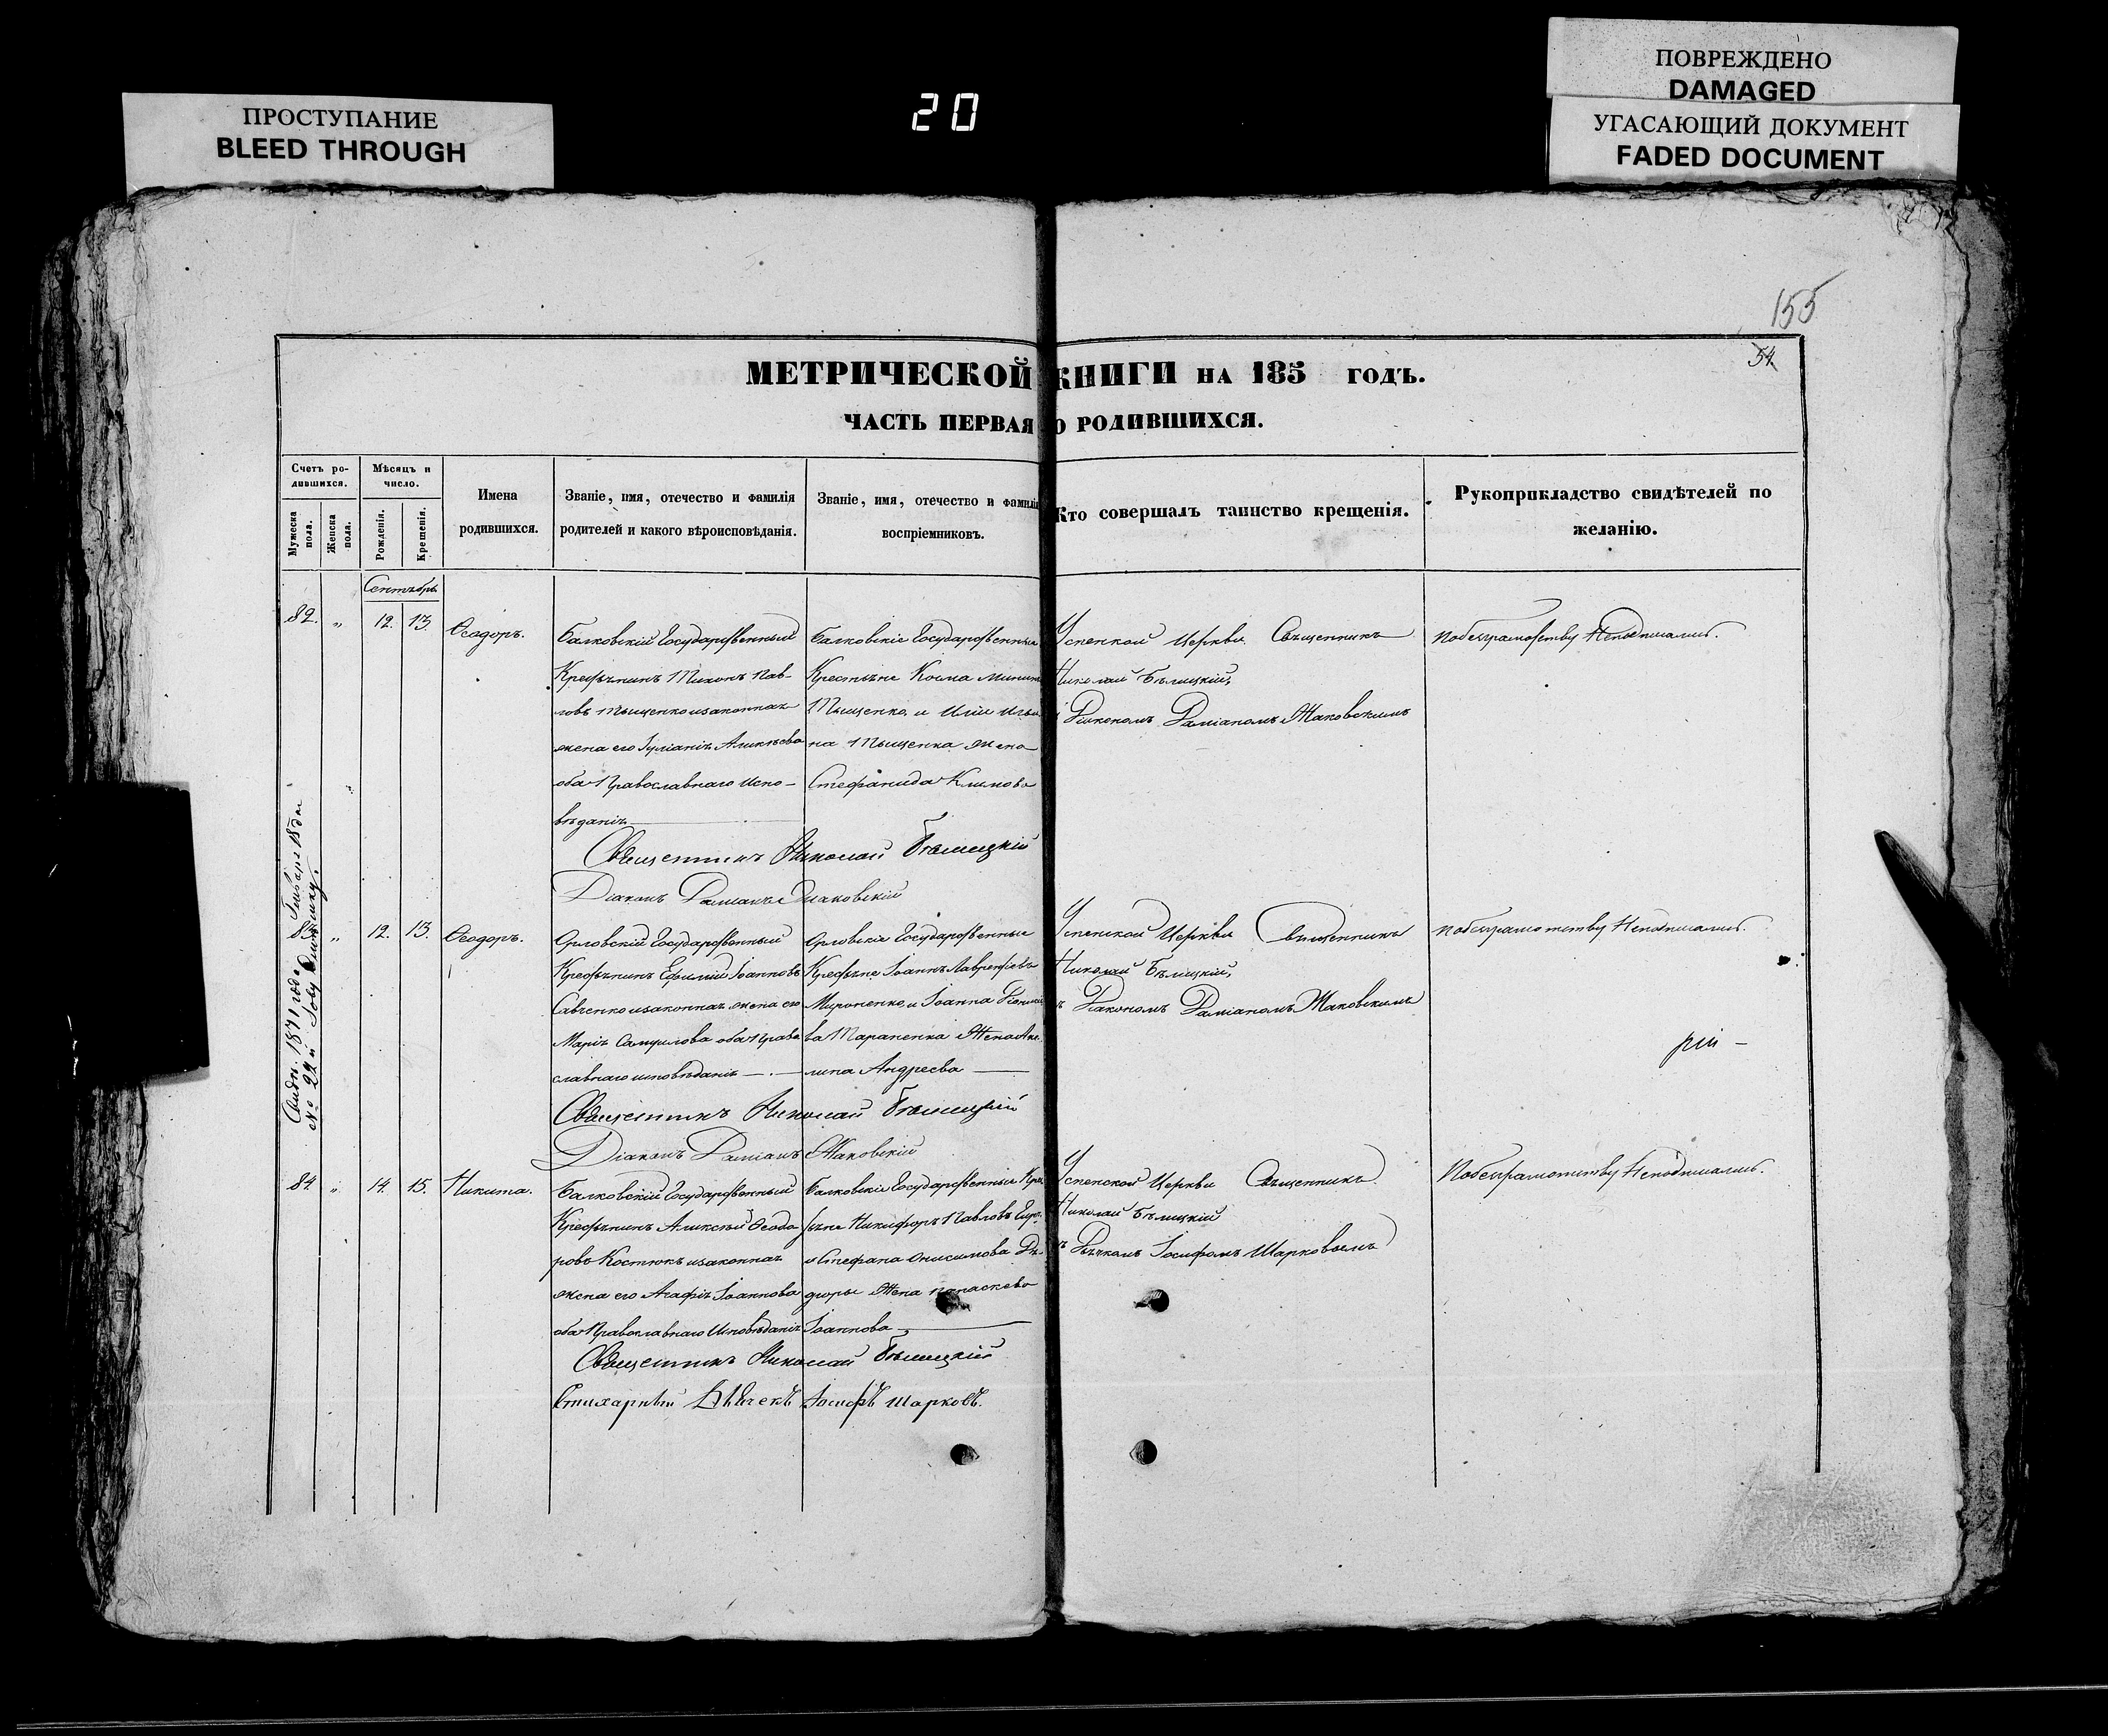 ПРОСТУПАНИЕ
BLEED THROUGH
20
ПОВРЕЖДЕНО
DAMAGED
УГАСАЮЩИЙ ДОКУМЕНТ
FADED DOCUMENT
155
54
МЕТРИЧЕСКОЙ КНИГИ НА 185 ГОДЪ.
ЧАСТЬ ПЕРВАЯ О РОДИВШИХСЯ.
Счетъ ро-
дившихся.
Мужеска
пола.
Женска
пола.
Мѣсяцъ и
число.
Рожденія.
Крещенія.
Имена
родившихся.
Званіе, имя, отечество и фамилія
родителей и какого вѣроисповѣданія.
Званіе, имя, отечество и фамилія
воспріемниковъ.
Кто совершалъ таинство крещенія.
Рукоприкладство свидѣтелей по
желанію.
Сентябрь
82. „ 12. 13. Ѳеодоръ.
Балковскій Государственный
Крестьянинъ Тихонъ Пав-
ловъ Тыщенко изаконная
жена его Іуліанія
оба Православнаго испо-
вѣданія
Балковскіе Государственные
Крестьяне Косма
Тыщенко, и Иліи
на Тыщенка жена
Стефанида Климова
Успенской Церкви Священникъ
Николай Бѣлицкій,
Діакономъ Даміаномъ Жаковскимъ
побезграмотству Неподписались.
Священникъ Николай Бѣлицкій
Діаконъ Даміанъ Жаковскій
83. „ 12. 13. Ѳеодоръ.
Орловскій Государственный
Крестьянинъ Ефимій Іоанновъ
Савченко изаконная жена его
Марія Самуилова оба Право
славнаго исповѣданія
Орловскіе Государственные
Крестьяне Іоаннъ Лаврентіевъ
Мироненко, и Іоанна
ва Тараненка Жена Аки
лина Андреева
Успенской Церкви Священникъ
Николай Бѣлицкій,
ъ Діакономъ Даміаномъ Жаковскимъ
побезграмотству Неподписались.
рій –
Священникъ Николай Бѣлицкій
Діаконъ Даміанъ Жаковскій
1871 года Генваря 18 дня
№ 22й
84 „ 14. 15. Никита.
Балковскій Государственный
Крестьянинъ Алексѣй Ѳеодо
ровъ Костюкъ изаконная
жена его Агафія Іоаннова
оба Православнаго Исповѣданія
Балковскіе Государственные Кре
стьяне Никифоръ Павловъ
и Стефана Онисимова Дѣ-
дюры Жена параскева
Іоаннова
Успенской Церкви Священникъ
Николай Бѣлицкій
ъ Дьячкомъ Іосифомъ Шарковымъ
Побезграмотству Неподписались.
Священникъ Николай Бѣлицкій
Стихарный Дьячекъ Іосифъ Шарковъ.